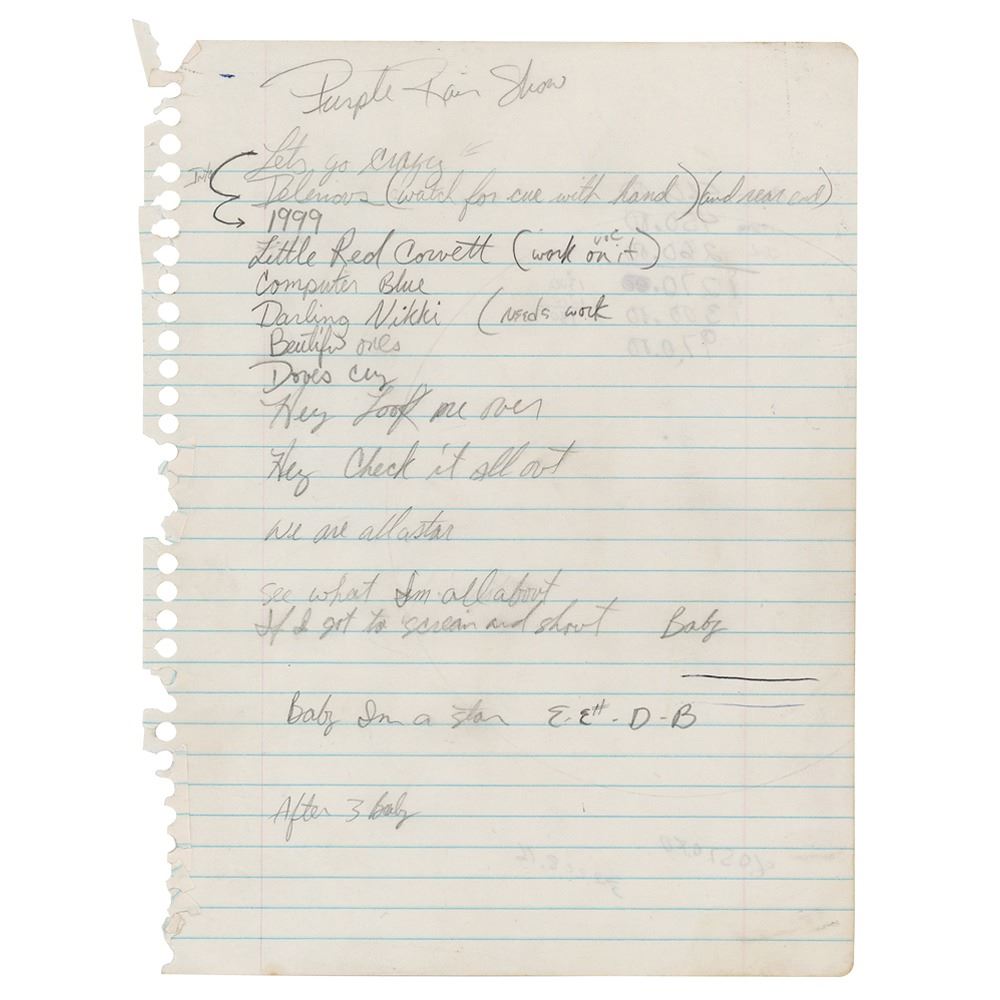 Purple Rain Show
Lets go crazy
Into
Delerious (watch for cue with hand) (and rear end)
1999
Little Red Corvett (work on it)
Computer Blue
Darling Nikki (needs work
Beutiful ones
Doves cry
Hey Look me over
Hey Check it all out
we are all a star
see what Im all about
If I got to scream and shout Baby
Baby Im a star E-E# - D - B
After 3 baby